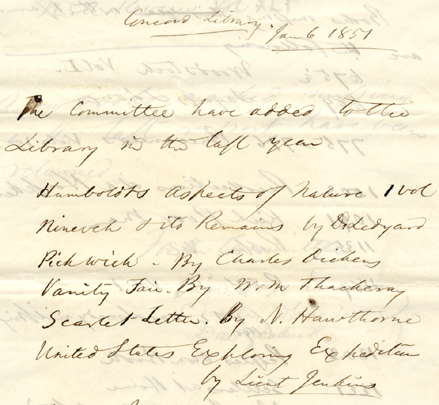 Concord Library. Jan 6 1851
The Committee have added to the
Library in the last year
Humboldts Aspects of Nature 1 vol
Nineveh & its Remains by Dr Ledyard
Pickwick - By Charles Dickens
Vanity Fair. By W M Thackeray
Scarlet Letter. By N. Hawthorne
United States Exploring Expedition
by Lieut Jenkins